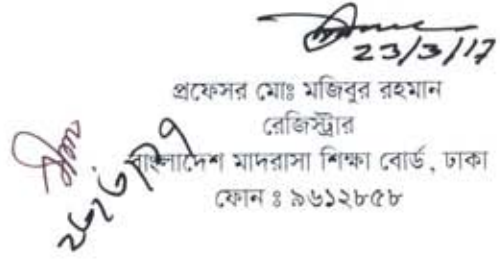 23/3/17
প্রফেসর মোঃ মজিবুর রহমান
রেজিস্ট্রার
বাংলাদেশ মাদরাসা শিক্ষা বোর্ড, ঢাকা
ফোন ঃ ৯৬১২৮৫৮